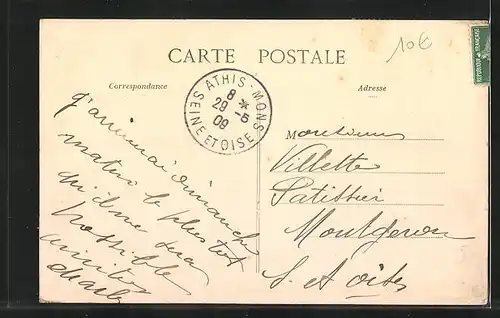 CARTE POSTALE
10€
REPUBLIQUE FRANÇAISE
Correspondance
Adresse
ATHIS-MONS
8 *
29 - 5
09
SEINE ET OISE
J'arriverai dimanche
matin le plus tôt
qu'il me sera
possible
amitiés
Charles
Monsieur
Villette
Patissier
Montgeron
S. et Oise